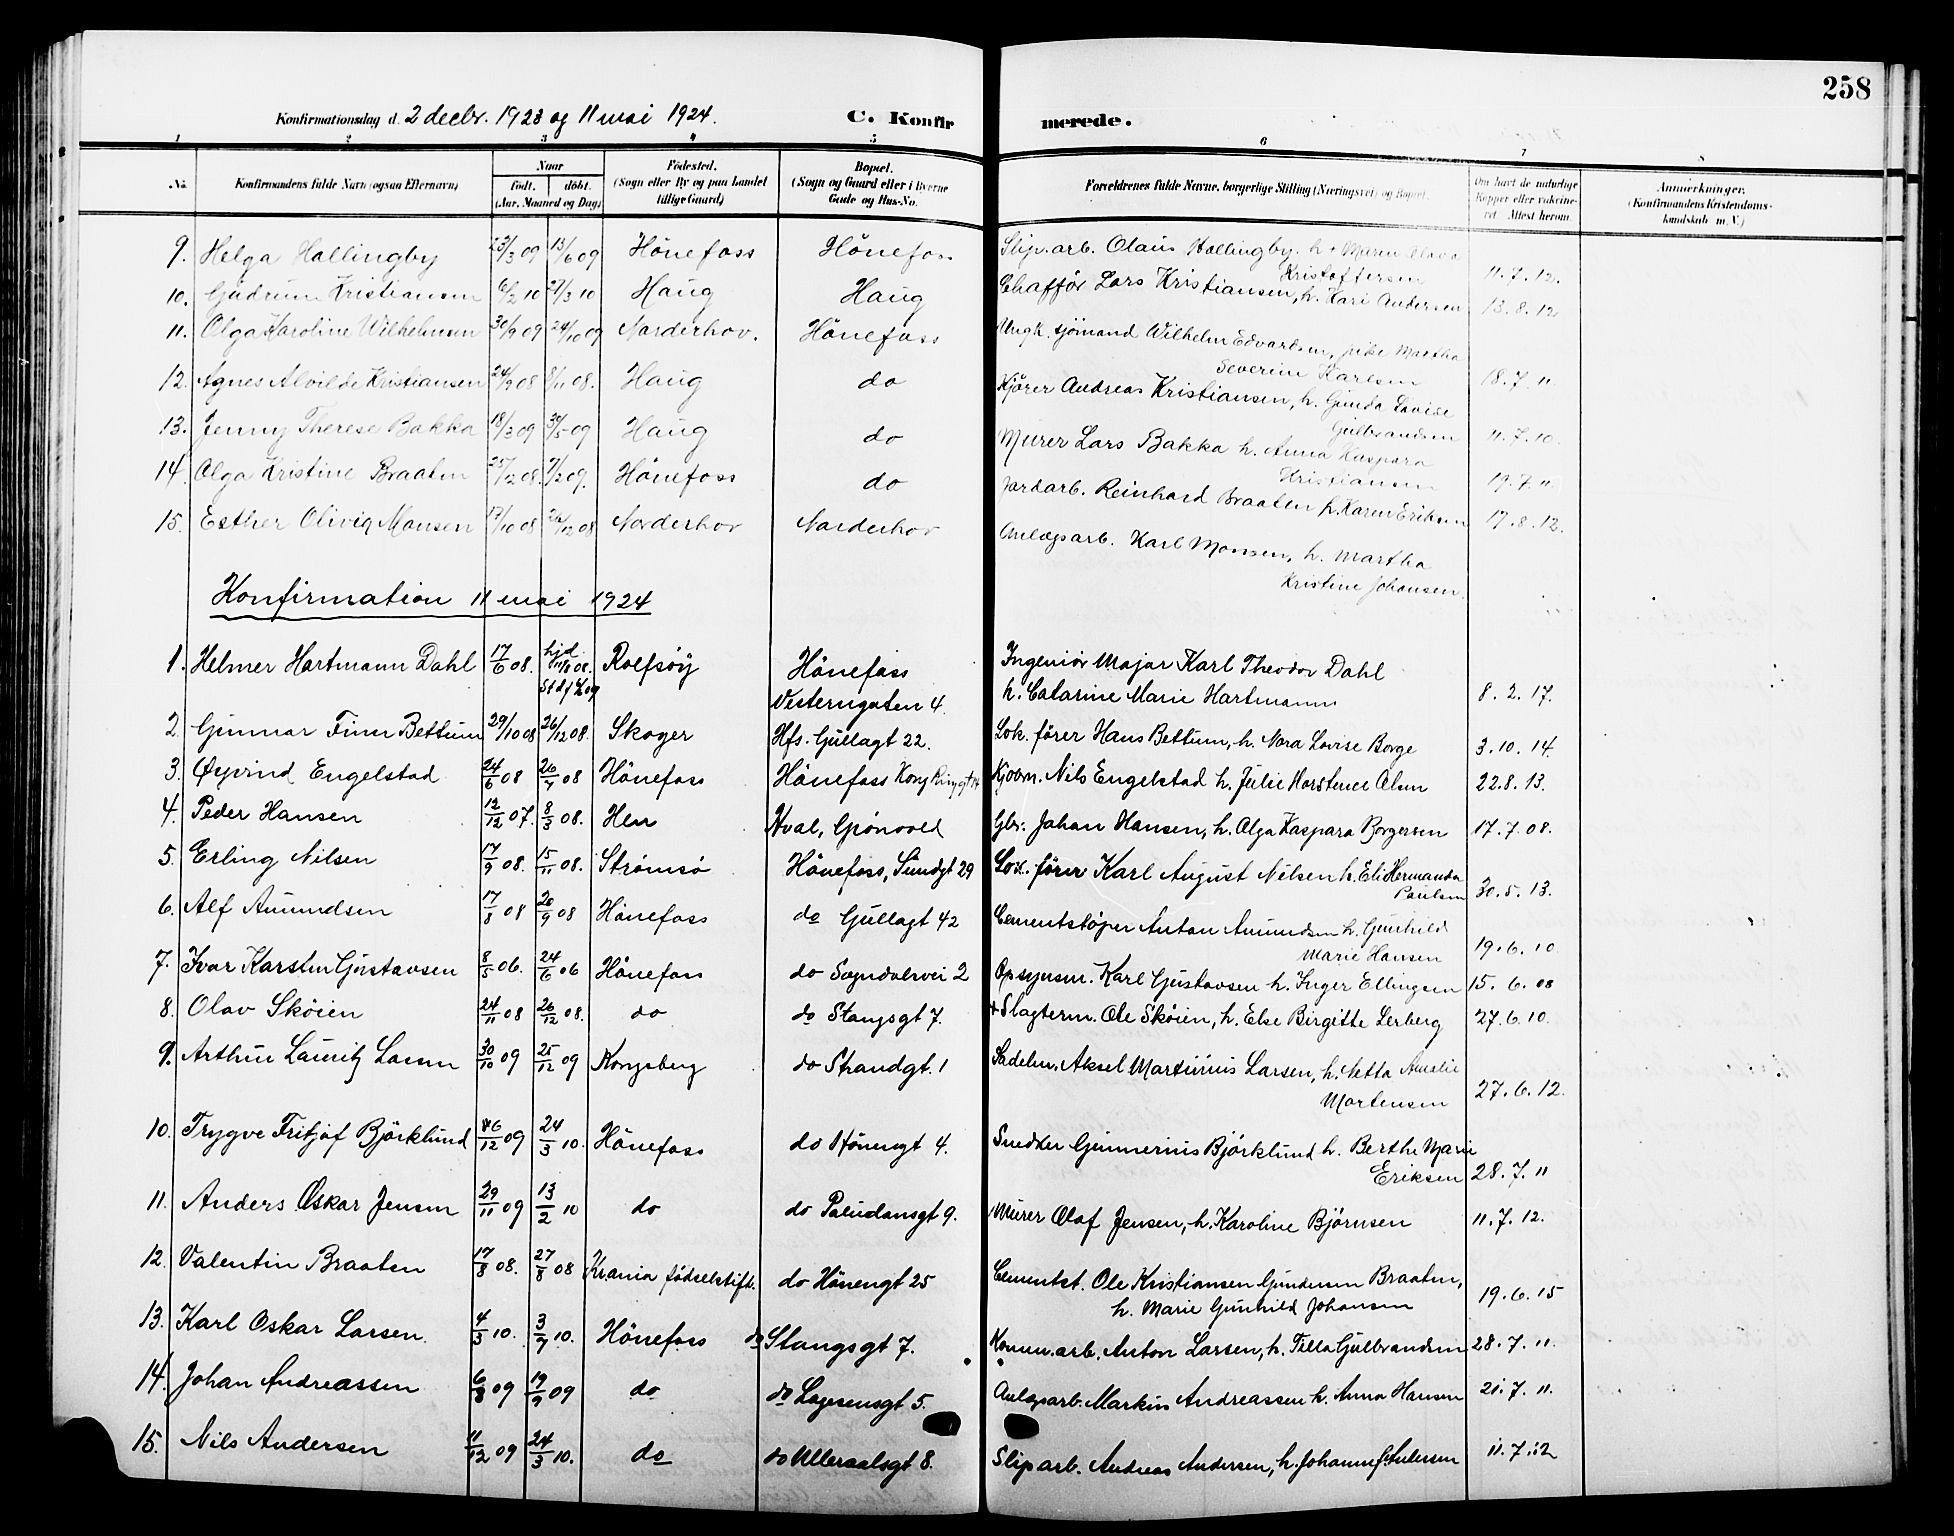 258
Konfirmationsdag d. 2 decbr. 1923 og 11 mai 1924. C. Konfirmerede.
1 2 3 4 5 6 7 8
No. Konfirmandens fulde Navn (ogsaa Efternavn) Naar født. døbt. (Aar, Maaned og Dag) Fødested. (Sogn eller By og paa Landet tillige Gaard) Bopæl. (Sogn og Gaard eller i Byerne Gade og Hus-No. Forældrenes fulde Navne, borgerlige Stilling (Næringsvei) og Bopæl. Om havt de naturlige Kopper eller vakcineret. Attest herom. Anmærkninger. (Konfirmandens Kristendomskundskab m. V.)
9. Helga Hallingby 23/3 09 13/6 09 Hönefoss Hönefoss Slip.arb. Olaus Hallingby. h. Maren Olava
Kristoffersen 11.7.12.
10. Gudrun Kristiansen 6/2 10 27/3 10 Haug Haug Chafför Lars Kristiansen, h. Kari Andersen 13.8.12
11. Olga Karoline Wilhelmsen 30/9 09 24/10 09 Norderhov. Hönefoss Ungk. sjömand Wilhelm Edvardsen, pike Martha
Severine Karlsen 18.7.11.
12. Agnes Alvilde Kristiansen 24/9 08 8/11 08. Haug do Kjörer Andreas Kristiansen, h. Gunda Lovise
Gulbrandsen 11.7.10.
13. Jenny Therese Bakka 18/3 09 30/5 09 Haug do Murer Lars Bakka h. Anna Kaspara
Kristiansen 19.7.11
14. Olga Kristine Braaten 25/12 08. 7/2 09. Hönefoss do Jordarb. Reinhard Braaten h. Karen Eriksen 17.8.12.
15. Esther Olivia Monsen 17/10 08 26/12 08 Norderhov Norderhov Anlægsarb. Karl Monsen, h. Martha
Kristine Johansen.
Konfirmation 11 mai 1924
1. Helmer Hartmann Dahl 17/6 08. hjd. 11/8 08. Rolfsöy Hönefoss Ingeniör Major Karl Theodor Dahl
Vesterngaten 4. h. Catarine Marie Hartmann 8.2.17.
2. Gunnar Finn Bettum 29/10 08 26/12 08. Skoger Hfs. Gullagt 22. Lok. förer Hans Bettum, h. Nora Lovise Borge 3.10.14.
3. Øyvind Engelstad 24/6 08 26/7 08 Hönefoss Hönefoss Kong Ringsgt 14 Kjøbm. Nils Engelstad h. Julie Horstence Olsen 22.8.13.
4. Peder Hansen 12/12 07. 8/3 08. Hen Hval, Grönvold Gbr. Johan Hansen, h. Olga Kaspara Borgersen 17.7.08.
5. Erling Nilsen 17/9 08. 15/11 08. Strömsö Hönefoss, Sundgt 29 Lok. förer Karl August Nilsen h. Eli Hermanda
Paulsen 30.5.13.
6. Alf Amundsen 17/8 08 20/9 08 Hönefoss do Gullagt 42 Cementstöper Anton Amundsen h. Gunhild
Marie Hansen 19.6.10
7. Ivar Karsten Gustavsen 8/5 06. 24/6 06 Hönefoss do Sogndalsvei 2 Opsynsm. Karl Gustavsen h. Inger Ellingsen 15.6.08
8. Olav Sköien 24/11 08 26/12 08. do do Stangsgt 7. + Slagterm. Ole Sköien, h. Else Birgitte Lerberg 27.6.10.
9. Arthur Lauritz Larsen 30/10 09 25/12 09 Kongsberg do Strandgt. 1 Sadelm. Aksel Martinius Larsen, h. Netta Amalie
Mortensen 27.6.12.
10. Trygve Fritjof Björklund 26/12 09 24/3 10. Hönefoss do Hönengt 4. Snedker Gunnerius Björklund h. Berthe Marie
Eriksen 28.7.11
11. Anders Oskar Jensen 29/11 09 13/2 10 do do Paludansgt 9. Murer Olaf Jensen, h. Karoline Björnsen 11.7.12.
12. Valentin Braaten 17/8 08. 27/8 08 Krania födselstift. do Hönengt 25 Cementst. Ole Kristiansen Gundersen Braaten,
h. Marie Gunhild Johansen 19.6.15
13. Karl Oskar Larsen. 4/5 10. 3/7 10. Hönefoss do Stangsgt 7. Komm.arb. Anton Larsen, h. Tilla Gulbrandsen 28.7.11.
14. Johan Andreassen 6/8 09 19/9 09 do do Lagesensgt 5. Anlægsarb. Markus Andreassen h. Anna Hansen 21.7.11.
15. Nils Andersen 11/12 09 24/3 10. do do Ulleraalsgt 8. Slip arb. Andreas Andersen, h. Johanne 11.7.12